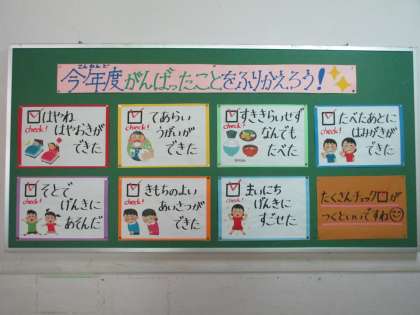 こんねんど
今年度がんばったことをふりかえろう!
check!
はやね
はやおきが
できた
check!
てあらい
うがいが
できた
check!
すききらいせず
なんでも
たべた
check!
たべたあとに
はみがきが
できた
check!
そとで
げんきに
あそんだ
check!
きもちのよい
あいさつが
できた
check!
まいにち
げんきに
すごせた
たくさんチェック☑が
つくといいですね